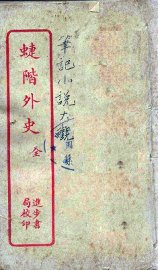 蜨階外史
全
進步書
局校印
筆記小說大觀